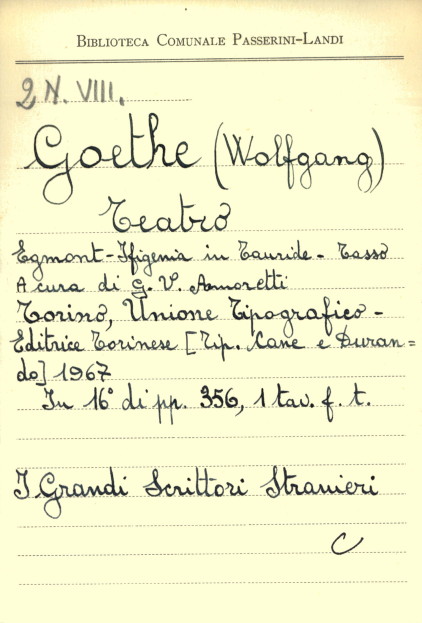 BIBLIOTECA COMUNALE PASSERINI-LANDI
2 N. VIII.
Goethe (Wolfgang)
Teatro
Egmont - Ifigenia in Tauride - Tasso
A cura di G. V. Amoretti
Torino, Unione Tipografico -
Editrice Torinese [Tip. Cane e Duran=
do] 1967
In 16° di pp. 356, 1 tav. f. t.
I Grandi Scrittori Stranieri
C